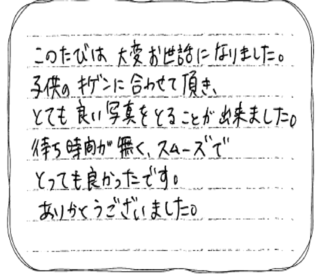 このたびは 大変お世話になりました。
子供のキゲンに合わせて頂き、
とても良い写真をとることが出来ました。
待ち時間が無く、スムーズで
とっても良かったです。
ありがとうございました。